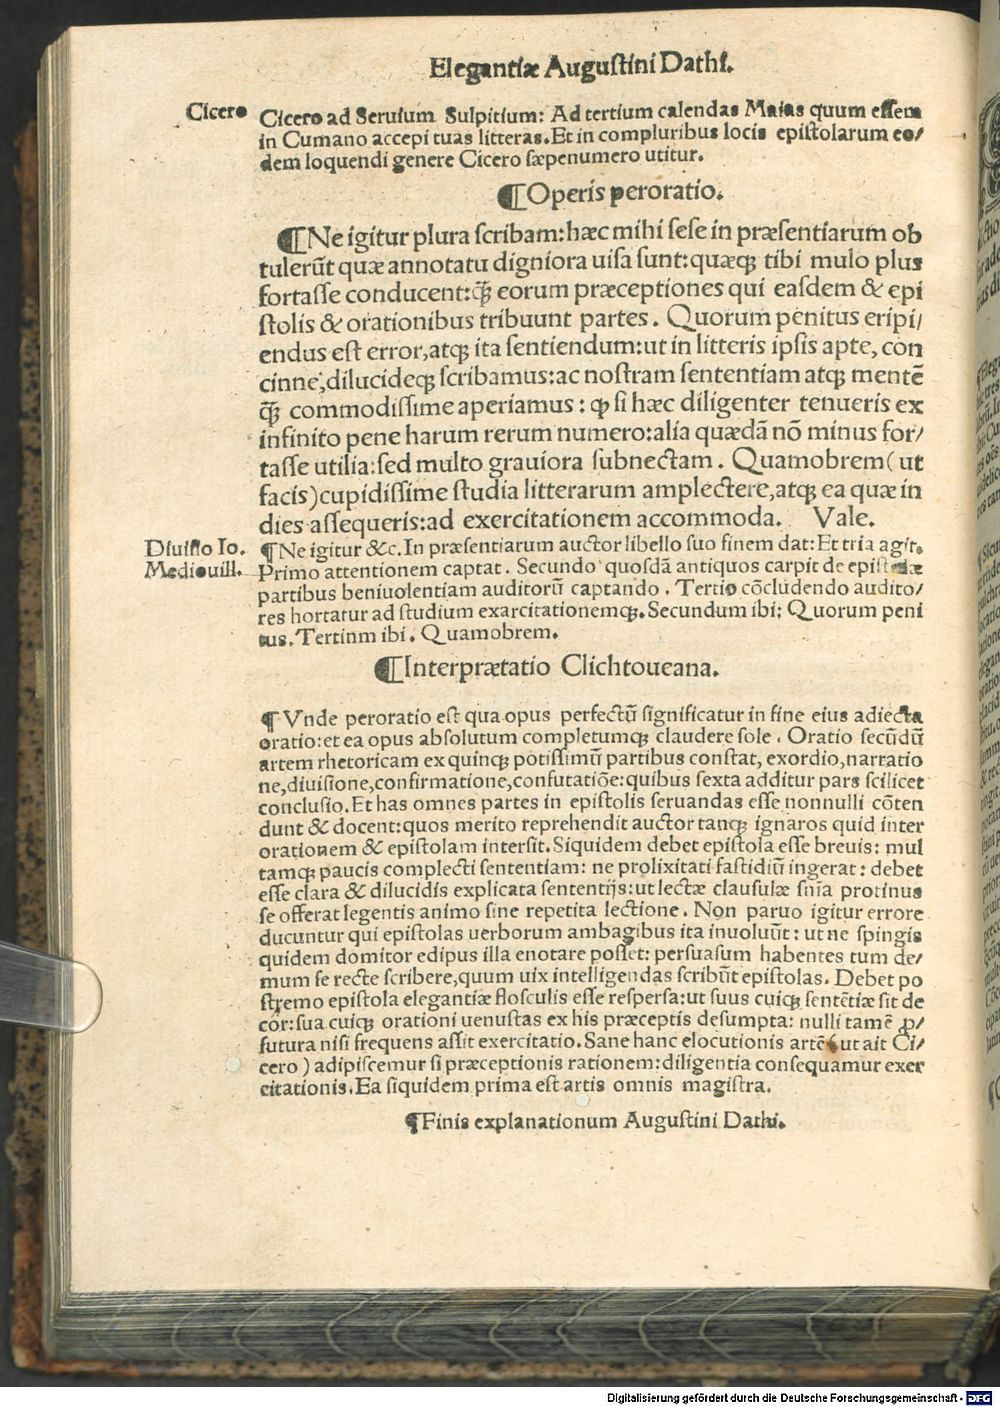 Elegantiæ Augustini Dathi.
Cicero
Cicero ad Seruium Sulpitium: Ad tertium calendas Maias quum essem
in Cumano accepi tuas litteras. Et in compluribus locis epistolarum eo/
dem loquendi genere Cicero sæpenumero utitur.
¶Operis peroratio.
¶Ne igitur plura scribam: hæc mihi sese in præsentiarum ob
tulerūt quæ annotatu digniora uisa sunt: quæq; tibi mulo plus
fortasse conducent: q̃ȝ eorum præceptiones qui easdem & epi
stolis & orationibus tribuunt partes. Quorum penitus eripi/
endus est error, atq; ita sentiendum: ut in litteris ipsis apte, con
cinne, dilucideq; scribamus: ac nostram sententiam atq; mentē
q̃ȝ commodissime aperiamus: ꝙ si hæc diligenter tenueris ex
infinito pene harum rerum numero: alia quædā nō minus for/
tasse utilia: sed multo grauiora subnectam. Quamobrem (ut
facis) cupidissime studia litterarum amplectere, atq; ea quæ in
dies assequeris: ad exercitationem accommoda. Vale.
Diuisio Io.
Mediouill.
¶Ne igitur &c. In præsentiarum auctor libello suo finem dat: Et tria agit.
Primo attentionem captat. Secundo quosdā antiquos carpit de epistolæ
partibus beniuolentiam auditorū captando. Tertio cōcludendo audito/
res hortatur ad studium exarcitationemq;. Secundum ibi: Quorum peni
tus. Tertinm ibi. Quamobrem.
¶Interprætatio Clichtoueana.
¶Vnde peroratio est qua opus perfectū significatur in fine eius adiecta
oratio: et ea opus absolutum completumq; claudere sole. Oratio secūdū
artem rhetoricam ex quinq; potissimū partibus constat, exordio, narratio
ne, diuisione, confirmatione, confutatiōe: quibus sexta additur pars scilicet
conclusio. Et has omnes partes in epistolis seruandas esse nonnulli cōten
dunt & docent: quos merito reprehendit auctor tanq; ignaros quid inter
orationem & epistolam intersit. Siquidem debet epistola esse breuis: mul
tamq; paucis complecti sententiam: ne prolixitati fastidiū ingerat: debet
esse clara & dilucidis explicata sententijs: ut lectæ clausulæ snīa protinus
se offerat legentis animo sine repetita lectione. Non paruo igitur errore
ducuntur qui epistolas uerborum ambagibus ita inuoluūt: ut ne spingis
quidem domitor edipus illa enotare posset: persuasum habentes tum de/
mum se recte scribere, quum uix intelligendas scribūt epistolas. Debet po
stremo epistola elegantiæ flosculis esse respersa: ut suus cuiq; sentētiæ sit de
cor: sua cuiq; orationi uenustas ex his præceptis desumpta: nulli tamē ꝓ/
futura nisi frequens assit exercitatio. Sane hanc elocutionis artē (ut ait Ci/
cero) adipiscemur si præceptionis rationem: diligentia consequamur exer
citationis. Ea siquidem prima est artis omnis magistra.
¶Finis explanationum Augustini Dathi.
Digitalisierung gefördert durch die Deutsche Forschungsgemeinschaft - DFG